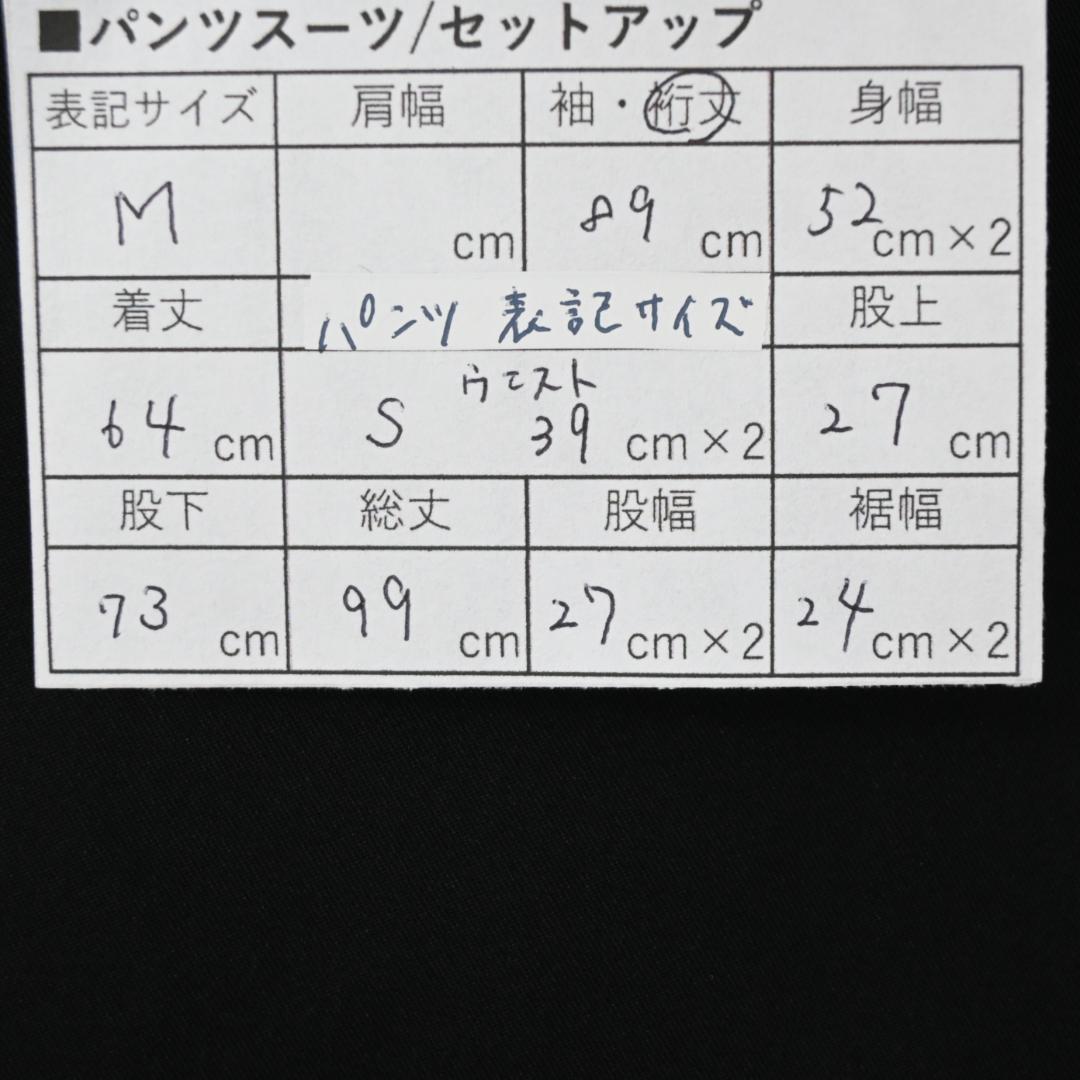 ■パンツスーツ/セットアップ
表記サイズ 肩幅 袖・裄丈 身幅
M cm 89 cm 52 cm×2
着丈 パンツ 表記サイズ 股上
ウエスト
64 cm S 39 cm×2 27 cm
股下 総丈 股幅 裾幅
73 cm 99 cm 27 cm×2 24 cm×2